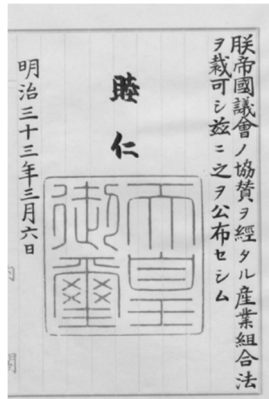 朕帝國議會ノ協賛ヲ經タル産業組合法
ヲ裁可シ茲ニ之ヲ公布セシム
睦仁
天皇
御璽
明治三十三年三月六日
内閣